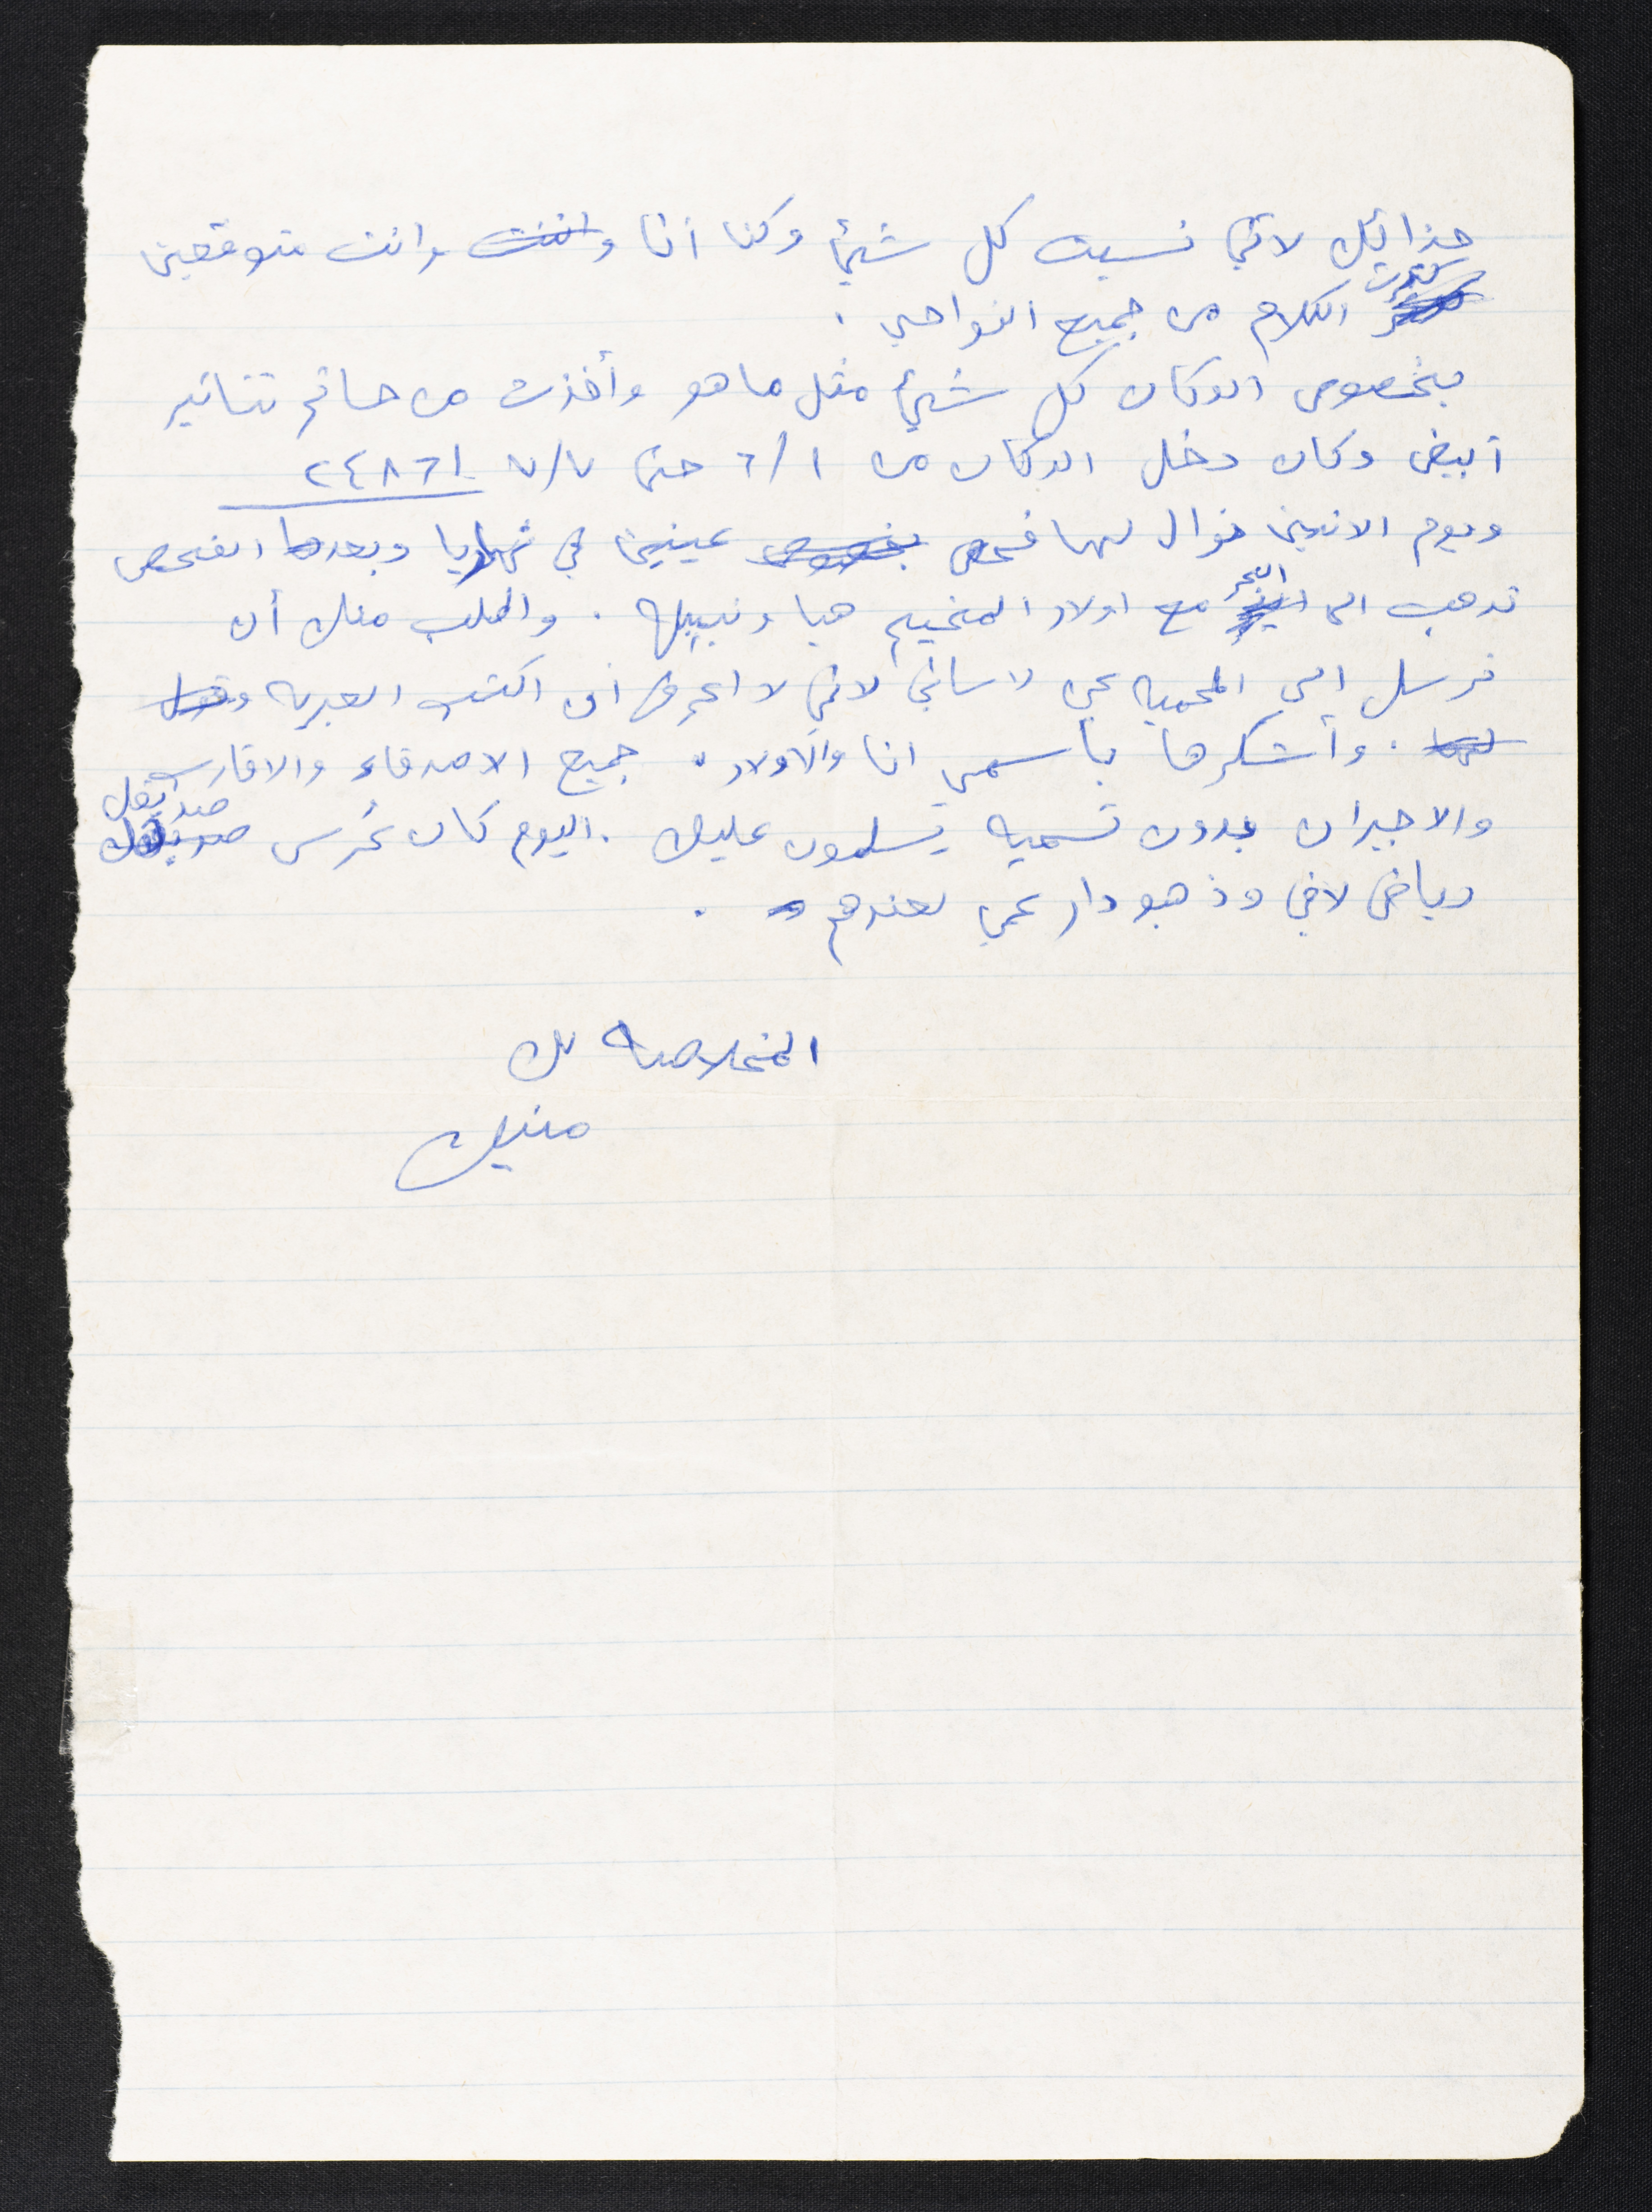 جذائيل لاني نسيت كل شيئ وكنا أنا وانت متوقعين
كثرت الكلام من جميع النواحي .
بخصوص الدكان كل شيئ مثل ما هو وأخذت من حاتم تنانير
أبيض وكان دخل الدكان من ١/٦ حتى ٧/٧ ٢٤٨٦١
ويوم الاثنين نوال لها فحص عينين في نهاريا وبعد الفحص
تدهب الى البحر مع اولاد المخيم هبا ونبيله . واطلب منك أن
ترسل الى المحميه عن لاساني لاني لا اعرف أن اكتب العبريه
. وأشكرها بأسمي انا والاولاد . جميع الاصدقاء والاقارب
والاجيران بدون تسميه يسلمون عليك . اليوم كان عُرس صدايقك
رياض لافي وذهبو دار عمي لعندهم .
المخلاصه لك
منيك